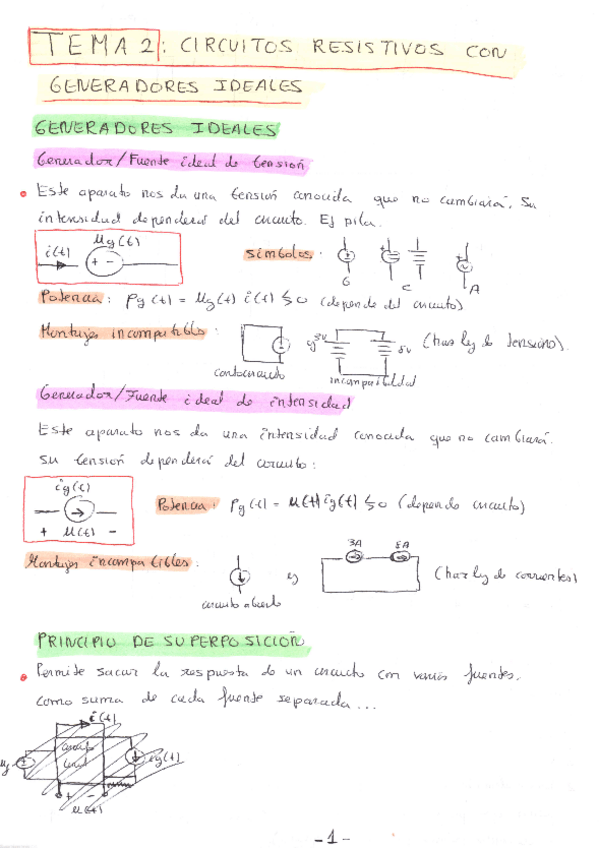 TEMA 2: CIRCUITOS RESISTIVOS CON
GENERADORES IDEALES
GENERADORES IDEALES
Generador/Fuente ideal de tensión
Este aparato nos da una tensión conocida que no cambiará. Su
intensidad dependerá del circuito. Ej pila.
i(t) Ug(t) + -
Símbolos:
G C A
Potencia: Pg(t) = Ug(t) i(t) ≶ 0 (depende del circuito)
Montajes incompatibles:
ej 3V 5V
(has ley de tensiones).
cortocircuito incompatibilidad
Generador/Fuente ideal de intensidad
Este aparato nos da una intensidad conocida que no cambiará.
Su tensión dependerá del circuito:
ig(t)
+ U(t) -
Potencia: Pg(t) = U(t) ig(t) ≶ 0 (depende circuito)
Montajes incompatibles:
ej 3A 5A
(has ley de corrientes)
circuito abierto
PRINCIPIO DE SUPERPOSICIÓN
Permite sacar la respuesta de un circuito con varias fuentes,
como suma de cada fuente separada...
i(t)
ig(t)
+ -
U(t)
-1-